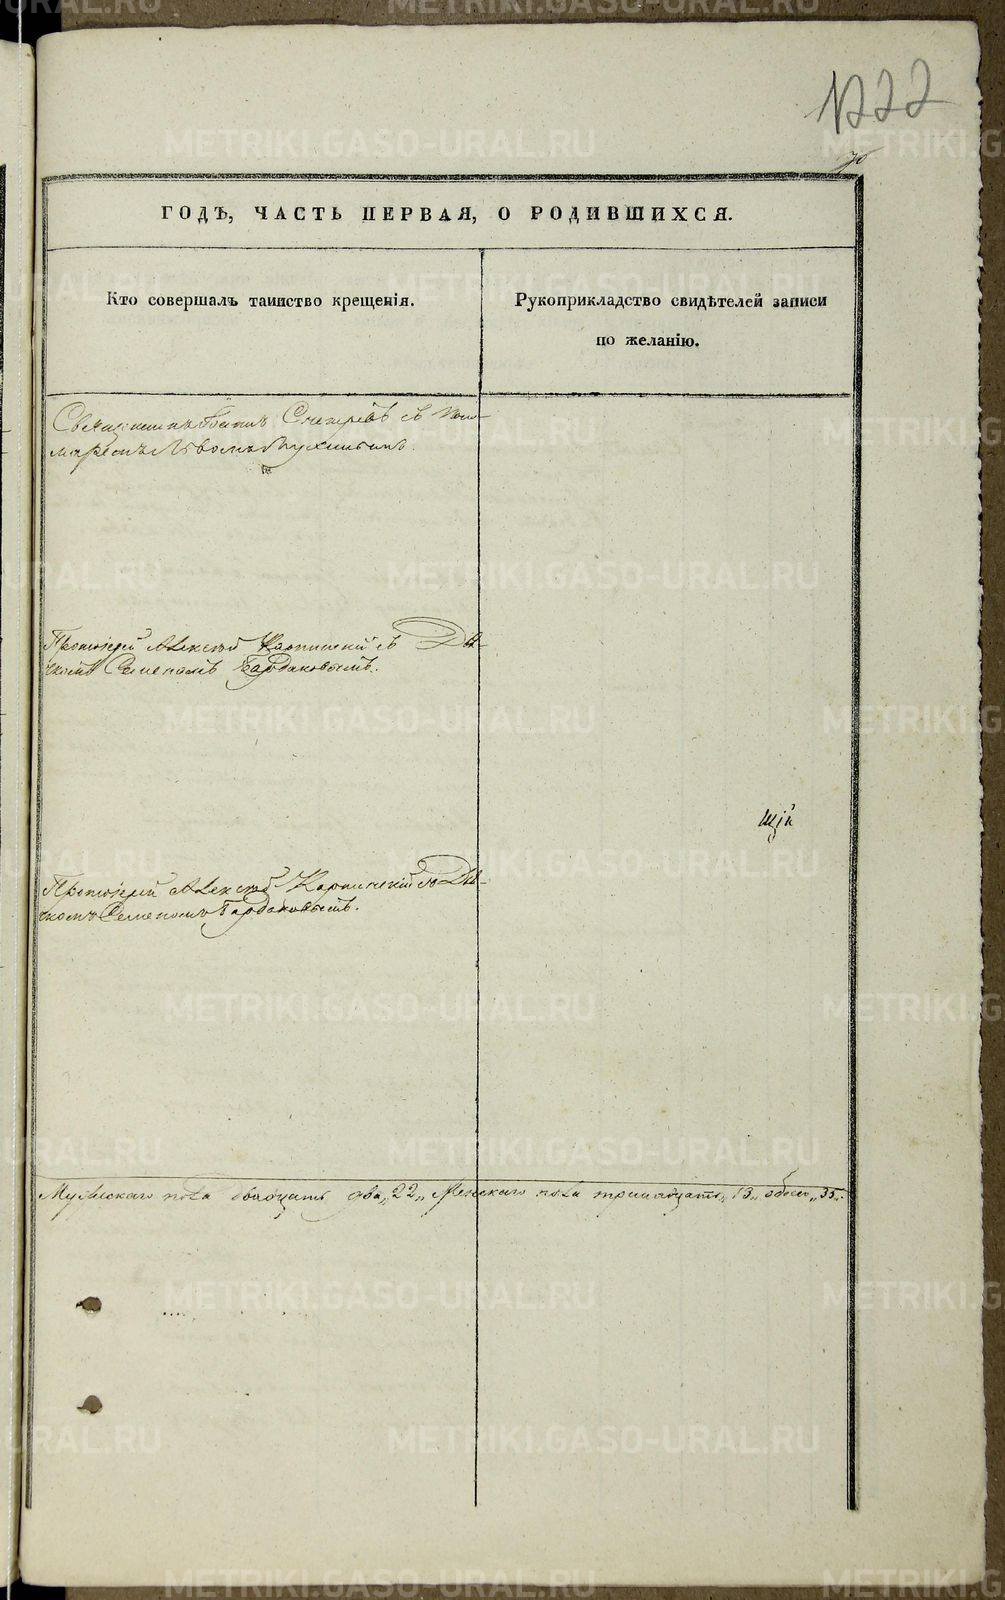 1222
70
ГОДЪ, ЧАСТЬ ПЕРВАЯ, О РОДИВШИХСЯ.
Кто совершалъ таинство крещенія.
Рукоприкладство свидѣтелей записи
по желанію.
Священникъ с По-
маремъ
Протоіерей Алексѣй Карпинскій съ Дья-
чкомъ Семеномъ Бардаковымъ.
щій
Протоіерей Алексѣй Карпинскій съ Дья-
чкомъ Семеномъ Бардаковымъ.
Мужескаго пола двадцать два „22„ Женскаго пола тринадцать „13„ обоего „35„.
METRIKI.GASO-URAL.RU